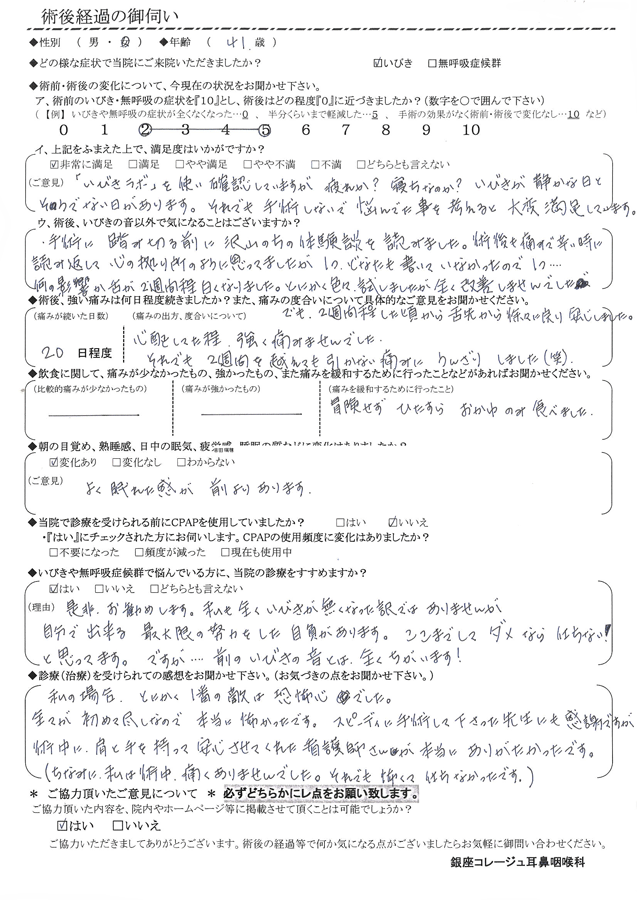 術後経過の御伺い
◆性別 （ 男 ・ 女 ） ◆年齢 （ 41 歳 ）
◆どの様な症状で当院にご来院いただきましたか？ ☑いびき □無呼吸症候群
◆術前・術後の変化について、今現在の状況をお聞かせ下さい。
ア、術前のいびき・無呼吸の症状を『10』とし、術後はどの程度『0』に近づきましたか？（数字を○で囲んで下さい）
（【例】 いびきや無呼吸の症状が全くなくなった…0 、 半分くらいまで軽減した…5 、 手術の効果がなく術前・術後で変化なし…10 など）
0 1 2 3 4 5 6 7 8 9 10
イ、上記をふまえた上で、満足度はいかがですか？
☑非常に満足 □満足 □やや満足 □やや不満 □不満 □どちらとも言えない
（ご意見） 「いびきラボ」を使い確認していますが 疲れか？ 寝ちなのか？ いびきが静かな日と
そうでない日があります。それでも手術しないで悩んでた事を考えると大変満足しています。
ウ、術後、いびきの音以外で気になることはございますか？
・手術に踏み切る前に沢山の方の体験談を読みました。術後も痛みで辛い時に
読み返して心の拠り所のように思ってましたが1つ、どなたも書いていなかったので1つ…
何の影響か舌が2週間程白くなりました。とにかく色々試しましたが全く改善しませんでした
◆術後、強い痛みは何日程度続きましたか？また、痛みの度合いについて具体的なご意見をお聞かせください。
でも、2週間程した頃から舌先から徐々に戻り安心しました。
（痛みが続いた日数） （痛みの出方、度合いについて）
20 日程度 心配してた程、強く痛みませんでした。
それでも2週間を越えても引かない痛みに うんざり しました(笑)。
◆飲食に関して、痛みが少なかったもの、強かったもの、また痛みを緩和するために行ったことなどがあればお聞かせください。
（比較的痛みが少なかったもの） （痛みが強かったもの） （痛みを緩和するために行ったこと）
冒険せず ひたすら おかゆのみ食べました。
◆朝の目覚め、熟睡感、日中の眠気、疲労感、睡眠の質などに変化はありましたか？
☑変化あり □変化なし □わからない
（ご意見） よく眠れた感が 前よりあります。
◆当院で診療を受けられる前にCPAPを使用していましたか？ □はい ☑いいえ
・『はい』にチェックされた方にお伺いします。CPAPの使用頻度に変化はありましたか？
□不要になった □頻度が減った □現在も使用中
◆いびきや無呼吸症候群で悩んでいる方に、当院の診療をすすめますか？
☑はい □いいえ □どちらとも言えない
（理由） 是非 お勧めします。私も全くいびきが無くなった訳では ありませんが
自分で出来る 最大限の努力をした自負があります。ここまでして ダメなら仕方ない！
と思ってます。ですが… 前のいびきの音とは、全くちがいます！
◆診療（治療）を受けられての感想をお聞かせ下さい。（お気づきの点をお聞かせ下さい。）
私の場合、とにかく1番の敵は 恐怖心 でした。
全てが初めて尽しなので 本当に怖かったです。スピーディに手術して下さった先生にも感謝ですが
術中に、肩と手を持って安心させてくれた看護師さんが本当にありがたかったです。
（ちなみに、私は術中、痛くありませんでした。それでも怖くて仕方なかったです。）
＊ ご協力頂いたご意見について ＊ 必ずどちらかにレ点をお願い致します。
ご協力頂いた内容を、院内やホームページ等に掲載させて頂くことは可能でしょうか？
☑はい □いいえ
ご協力いただきましてありがとうございます。術後の経過等で何か気になる点がございましたらお気軽に御問い合わせください。
銀座コレージュ耳鼻咽喉科